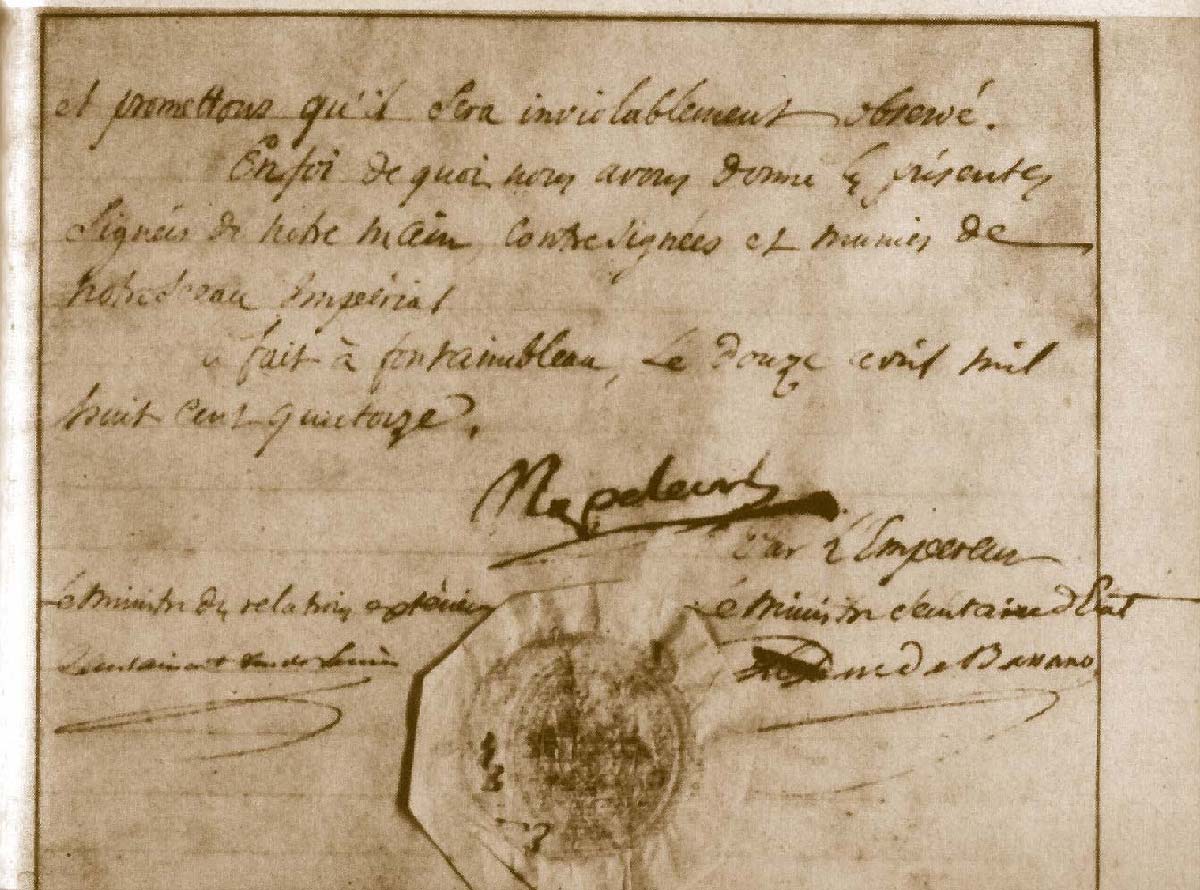 et promettons qu'il sera inviolablement observé.
En foi de quoi nous avons donné les présentes
signées de notre main, contresignées et munies de
notre sceau impérial
fait à fontainebleau, le douze avril mil
huit cent quatorze.
Napoleon
Par l'Empereur
Le ministre des relations extérieures
Le Ministre Secrétaire d'Etat
Le Duc de Bassano